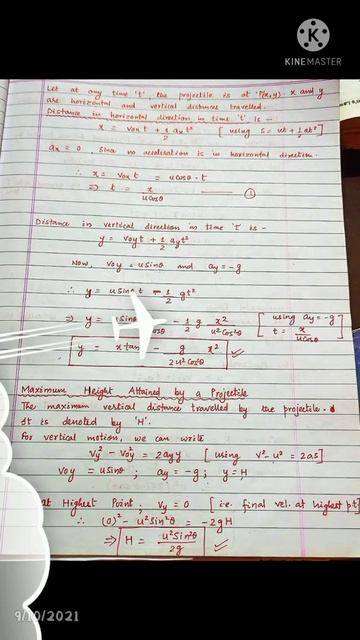 KINEMASTER
Let at any time 't', the projectile is at 'P(x,y). x and y
are horizontal and vertical distances travelled.
Distance in horizontal direction in time 't' is -
x = voxt + 1/2 axt² [using S = ut + 1/2 at²]
ax = 0, since no acceleration is in horizontal direction.
∴ x = voxt = ucosθ · t
⇒ t = x/ucosθ ——— ①
Distance in vertical direction in time 't' is -
y = voyt + 1/2 ayt²
Now, voy = usinθ and ay = -g
∴ y = usinθ t - 1/2 gt²
⇒ y = usinθ cosθ - 1/2 g x²/u²cos²θ [using ay = -g t = x/ucosθ]
y = x tan - g/2u²cos²θ x²
Maximum Height Attained by a Projectile
The maximum vertical distance travelled by the projectile.
It is denoted by 'H'.
For vertical motion, we can write
vy² - voy² = 2ayy [using v² - u² = 2as]
voy = usinθ; ay = -g; y = H
at Highest Point, vy = 0 [i.e. final vel. at highest pt]
∴ (0)² - u²sin²θ = -2gH
⇒ H = u²sin²θ/2g
9/10/2021